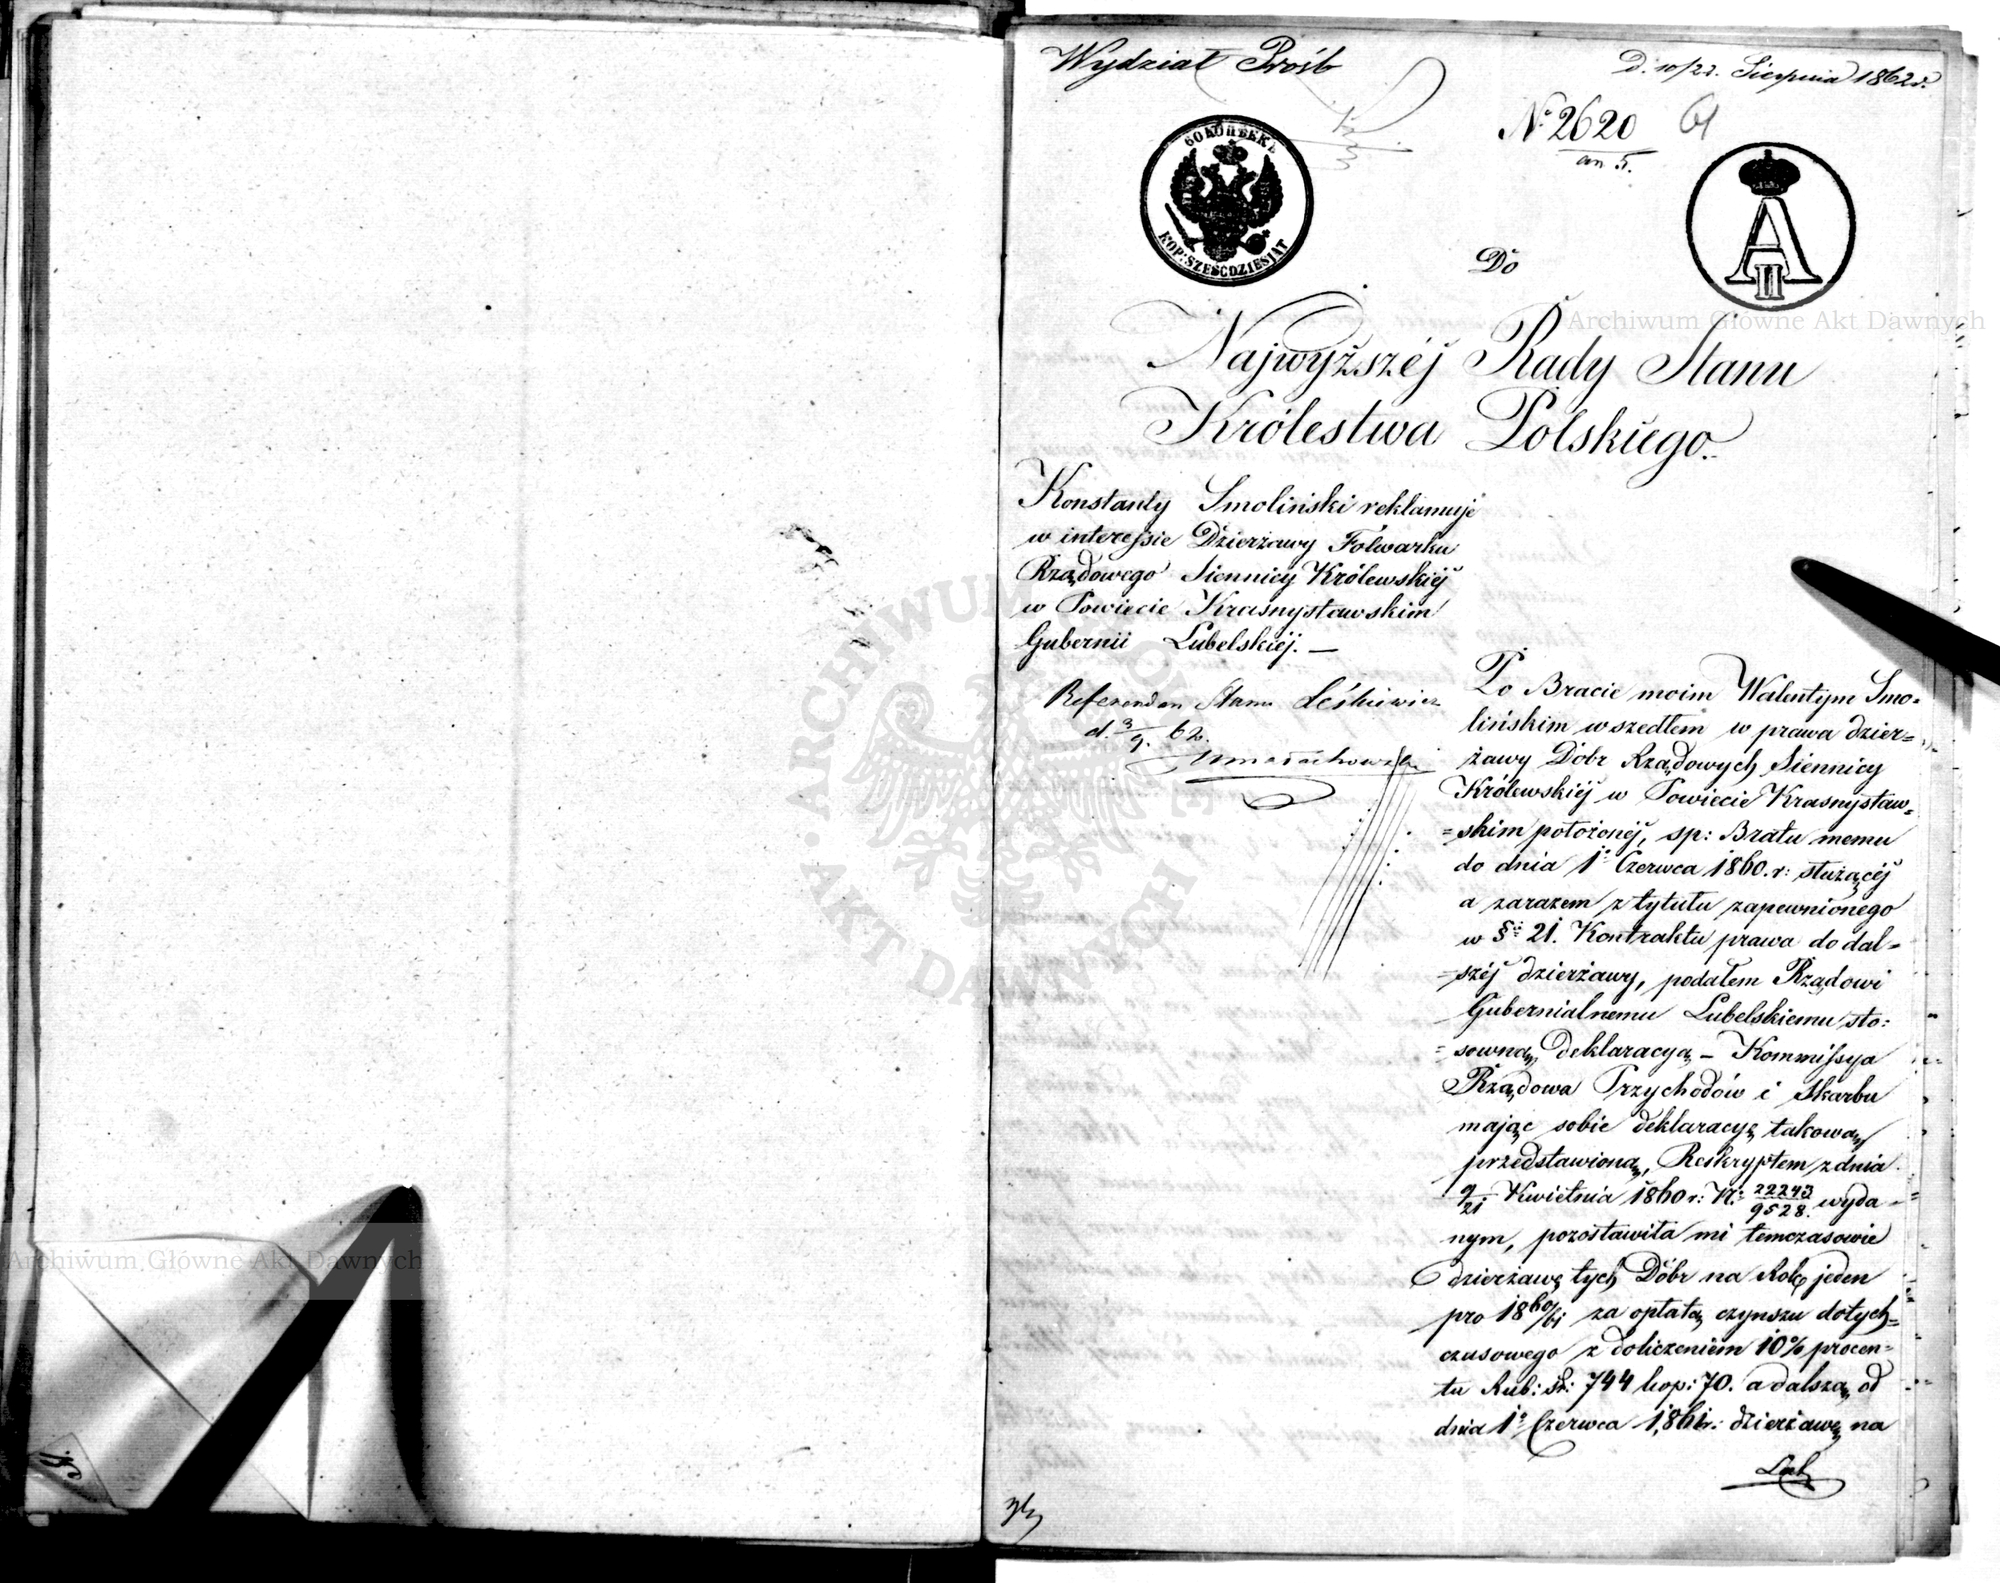 Wydział Próśb
D. 10/22. Sierpnia 1862 r.
No 2620
an 5.
61
60 КОПѢЕКЪ
KOP: SZEŚĆDZIESIĄT
A II
Do
Najwyższéj Rady Stanu
Królestwa Polskiego.
Konstanty Smoliński reklamuje
w interessie Dzierżawy Folwarku
Rządowego Siennicy Królewskiéj
w Powiecie Krasnystawskim
Gubernii Lubelskiéj. —
Referendarz Stanu Leśkiewicz
d. 3/9. 62.
Po Bracie moim Walentym Smo-
lińskim wszedłem w prawa dzier=
żawy Dóbr Rządowych Siennicy
Królewskiéj w Powiecie Krasnystaw=
=skim położonéj, sp: Bratu memu
do dnia 1o Czerwca 1860. r: służącéj
a zarazem z tytułu zapewnionego
w § 21. Kontraktu prawa do dal=
=széj dzierżawy, podałem Rządowi
Gubernialnemu Lubelskiemu sto:
=sowną deklaracyą – Kommissya
Rządowa Przychodów i Skarbu
mając sobie deklaracyę takową
przedstawioną, Reskryptem z dnia
9/21 Kwietnia 1860 r: No 22243/9528. wyda=
nym, pozostawiła mi tymczasowie
dzierżawę tych Dóbr na Rok jeden
pro 1860/61 za opłatą czynszu dotych=
czasowego z doliczeniem 10% procen=
tu Rub: sr: 744 kop: 70. a dalszą od
dnia 1o Czerwca 1861 r: dzierżawę na
Archiwum Główne Akt Dawnych
Archiwum Główne Akt Dawnych
ARCHIWUM GŁÓWNE · AKT DAWNYCH